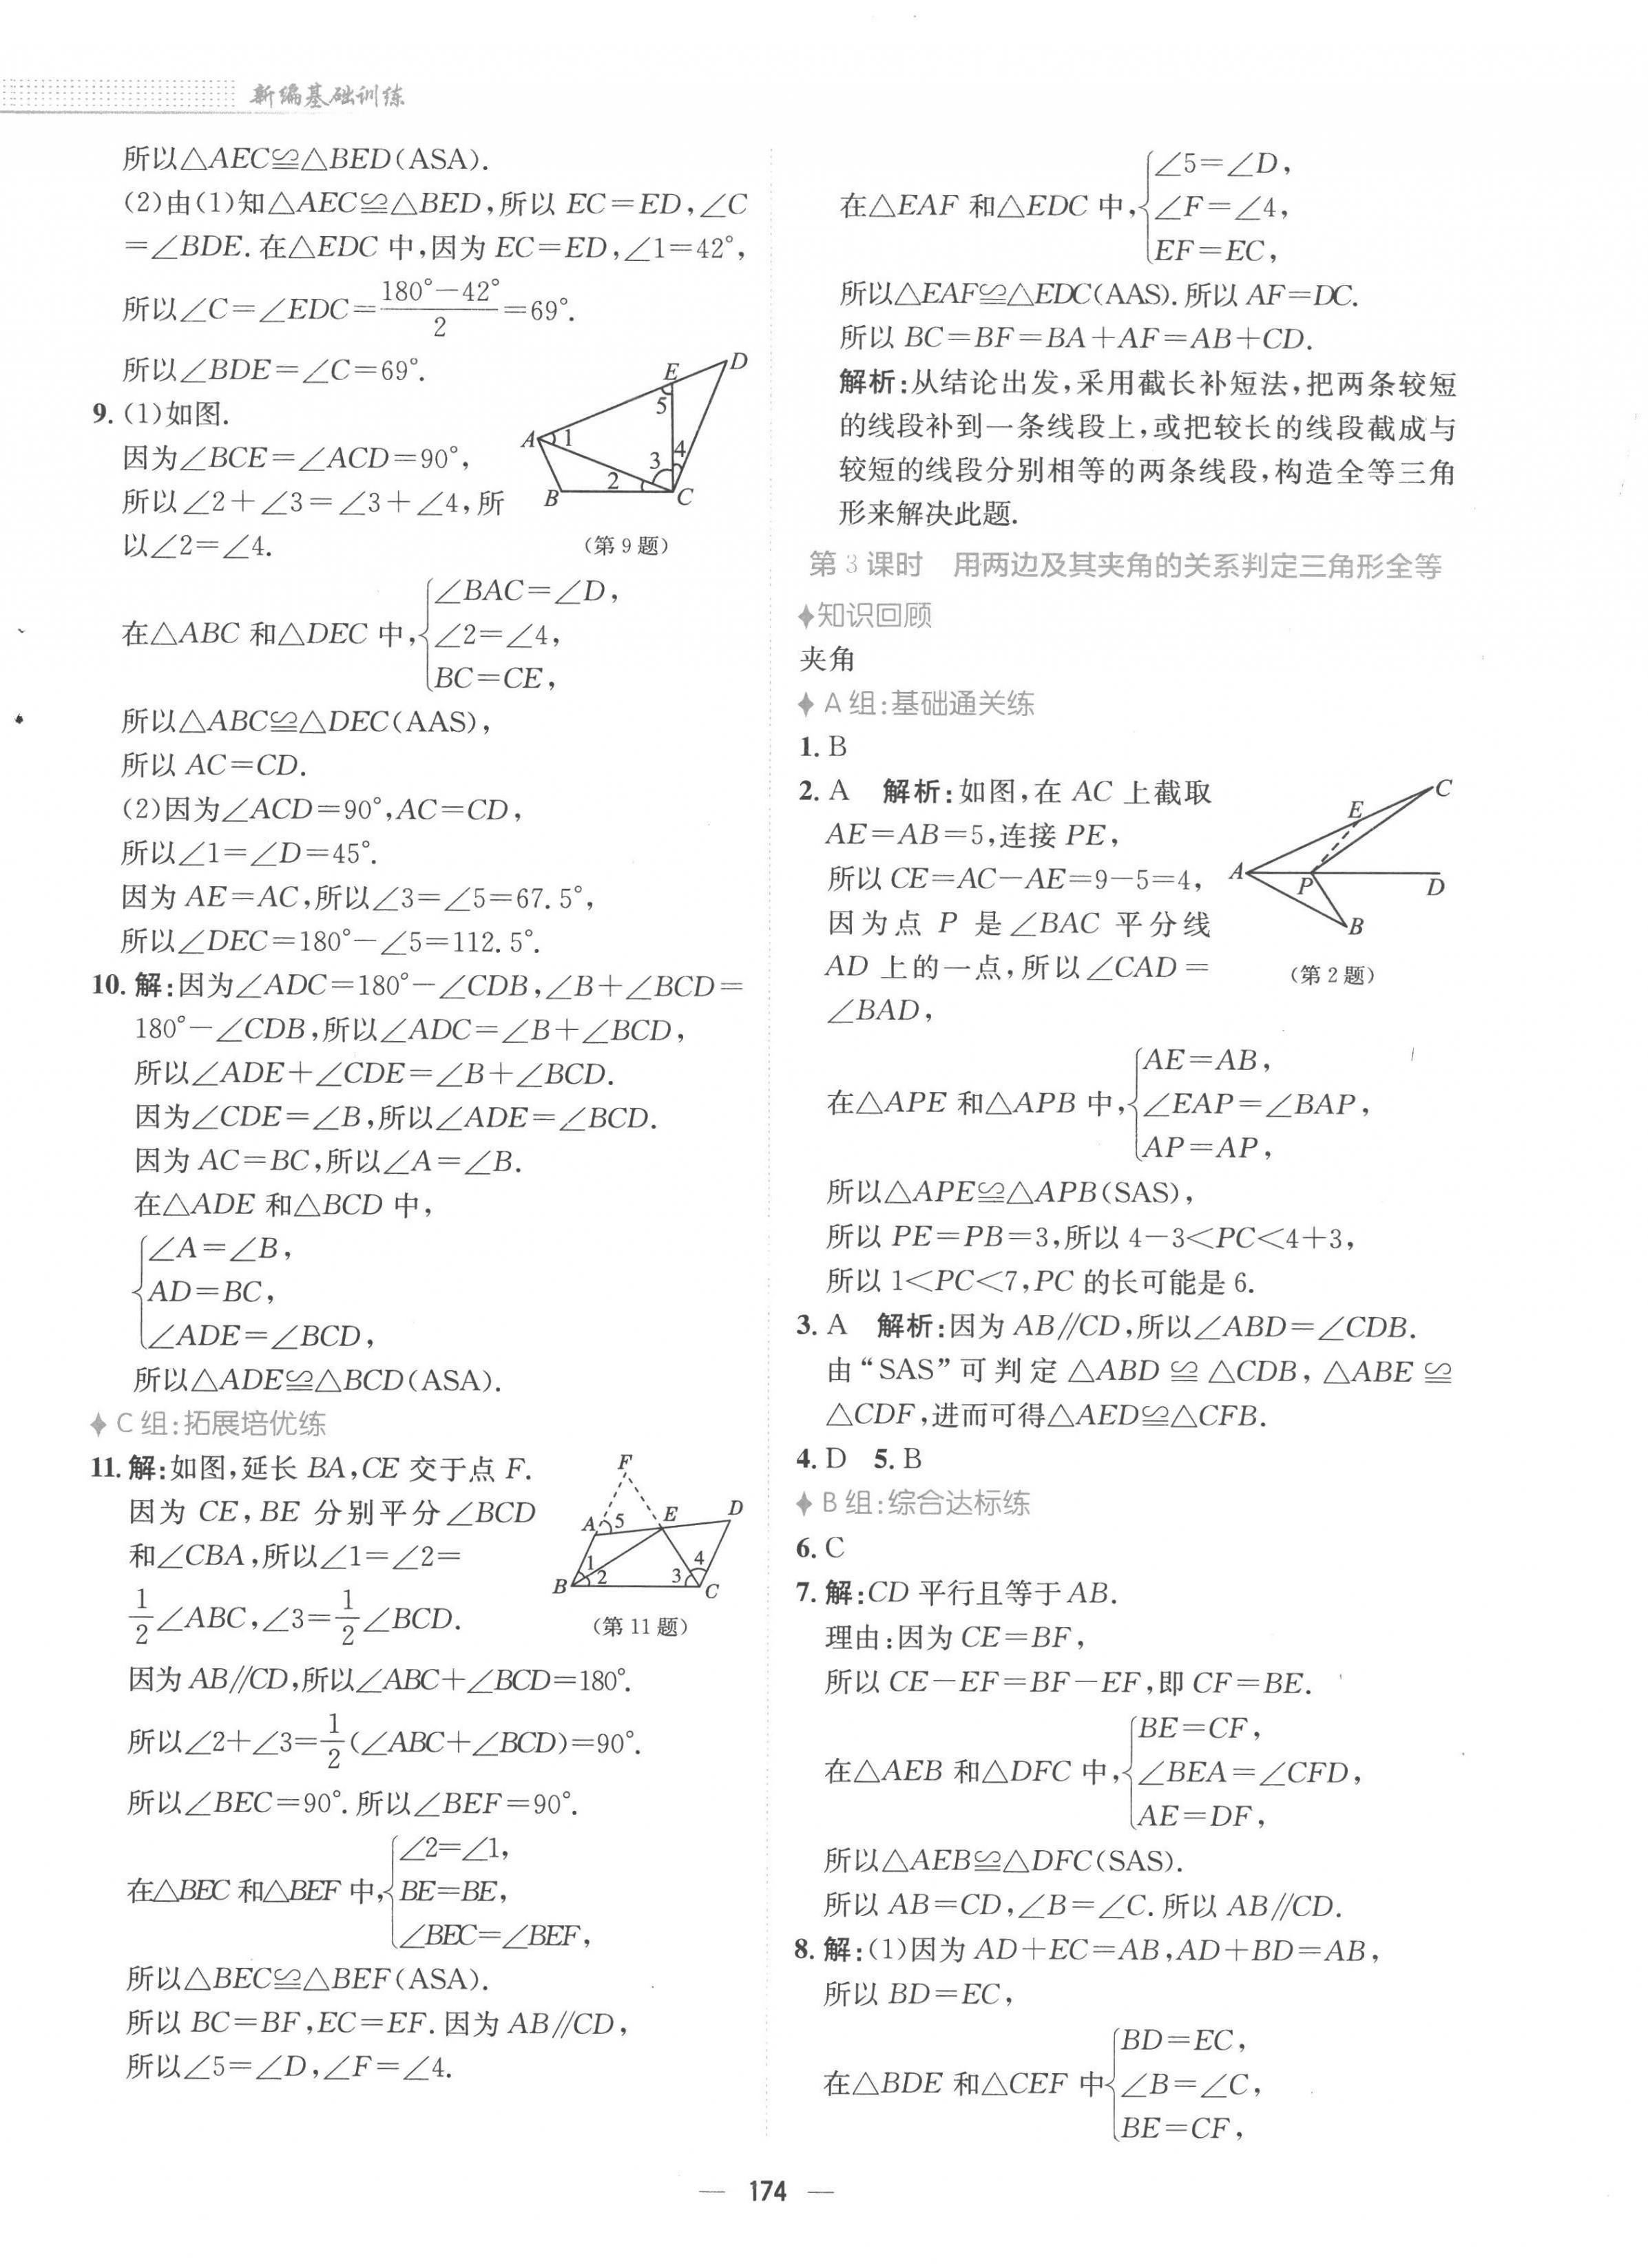 新编基础训练
所以△AEC≌△BED(ASA).
(2)由(1)知△AEC≌△BED,所以 EC=ED,∠C
=∠BDE.在△EDC 中,因为 EC=ED,∠1=42°,
所以∠C=∠EDC=(180°-42°)/2=69°.
所以∠BDE=∠C=69°.
9. (1)如图.
因为∠BCE=∠ACD=90°,
所以∠2+∠3=∠3+∠4,所
以∠2=∠4.
A B C D E 1 2 3 4 5
(第 9 题)
∠BAC=∠D,
在△ABC 和△DEC 中,{∠2=∠4,
BC=CE,
所以△ABC≌△DEC(AAS),
所以 AC=CD.
(2)因为∠ACD=90°,AC=CD,
所以∠1=∠D=45°.
因为 AE=AC,所以∠3=∠5=67.5°,
所以∠DEC=180°-∠5=112.5°.
10. 解:因为∠ADC=180°-∠CDB,∠B+∠BCD=
180°-∠CDB,所以∠ADC=∠B+∠BCD,
所以∠ADE+∠CDE=∠B+∠BCD.
因为∠CDE=∠B,所以∠ADE=∠BCD.
因为 AC=BC,所以∠A=∠B.
在△ADE 和△BCD 中,
{∠A=∠B,
AD=BC,
∠ADE=∠BCD,
所以△ADE≌△BCD(ASA).
C 组:拓展培优练
11. 解:如图,延长 BA,CE 交于点 F.
因为 CE,BE 分别平分∠BCD
和∠CBA,所以∠1=∠2=
1/2∠ABC,∠3=1/2∠BCD.
F A 5 E D B 1 2 3 4 C
(第 11 题)
因为 AB∥CD,所以∠ABC+∠BCD=180°.
所以∠2+∠3=1/2(∠ABC+∠BCD)=90°.
所以∠BEC=90°.所以∠BEF=90°.
∠2=∠1,
在△BEC 和△BEF 中,{BE=BE,
∠BEC=∠BEF,
所以△BEC≌△BEF(ASA).
所以 BC=BF,EC=EF.因为 AB∥CD,
所以∠5=∠D,∠F=∠4.
∠5=∠D,
在△EAF 和△EDC 中,{∠F=∠4,
EF=EC,
所以△EAF≌△EDC(AAS).所以 AF=DC.
所以 BC=BF=BA+AF=AB+CD.
解析:从结论出发,采用截长补短法,把两条较短
的线段补到一条线段上,或把较长的线段截成与
较短的线段分别相等的两条线段,构造全等三角
形来解决此题.
第 3 课时 用两边及其夹角的关系判定三角形全等
知识回顾
夹角
A 组:基础通关练
1. B
2. A 解析:如图,在 AC 上截取
AE=AB=5,连接 PE,
所以 CE=AC-AE=9-5=4,
因为点 P 是∠BAC 平分线
AD 上的一点,所以∠CAD=
∠BAD,
C E A P D B
(第 2 题)
AE=AB,
在△APE 和△APB 中,{∠EAP=∠BAP,
AP=AP,
所以△APE≌△APB(SAS),
所以 PE=PB=3,所以 4-3<PC<4+3,
所以 1<PC<7,PC 的长可能是 6.
3. A 解析:因为 AB∥CD,所以∠ABD=∠CDB.
由“SAS”可判定△ABD≌△CDB,△ABE≌
△CDF,进而可得△AED≌△CFB.
4. D 5. B
B 组:综合达标练
6. C
7. 解:CD 平行且等于 AB.
理由:因为 CE=BF,
所以 CE-EF=BF-EF,即 CF=BE.
BE=CF,
在△AEB 和△DFC 中,{∠BEA=∠CFD,
AE=DF,
所以△AEB≌△DFC(SAS).
所以 AB=CD,∠B=∠C.所以 AB∥CD.
8. 解:(1)因为 AD+EC=AB,AD+BD=AB,
所以 BD=EC,
BD=EC,
在△BDE 和△CEF 中{∠B=∠C,
BE=CF,
— 174 —